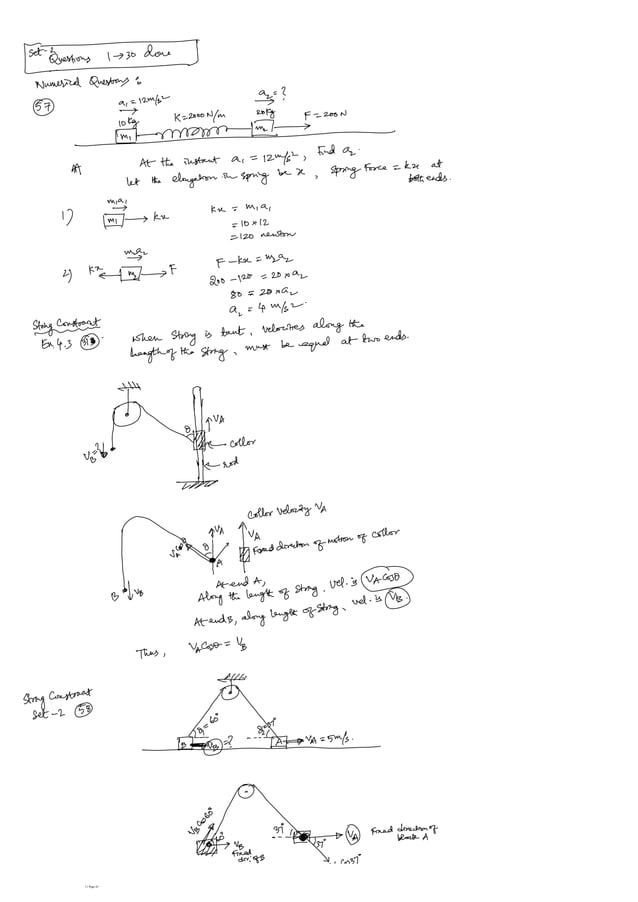 Set-2
Questions 1→30 done
Numerical Questions:
57
a₁ = 12m/s²
a₂ = ?
10kg
K=2000N/m
20kg
F=200N
m₁
m₂
At the instant a₁ = 12m/s², find a₂
let the elongation in spring be x, spring Force = kx at
both ends.
1)
m₁a₁
m₁
kx
kx = m₁a₁
= 10×12
= 120 newton
2)
kx
m₂a₂
m₂
F
F-kx = m₂a₂
200-120 = 20×a₂
80 = 20×a₂
a₂ = 4 m/s²
String Constraint
Ex 4.3
When String is taut, velocities along the
length of the string, must be equal at two ends.
θ
VA
VB=?
collor
rod
Collor Velocity VA
VA
θ
VA cosθ
A
VA
Fixed direction of motion of collor
B
VB
At end A,
Along the length of string, vel. is VA cosθ
At end B, along length of string, vel. is VB.
Thus, VA cosθ = VB
String Constraint
Set-2 58
θ₁=60°
θ₂=37°
B
VB=?
A
VA = 5m/s.
VB cos60°
60°
VB
Fixed
dirⁿ of B
37°
VA
37°
Fixed direction of
block A
cos37°